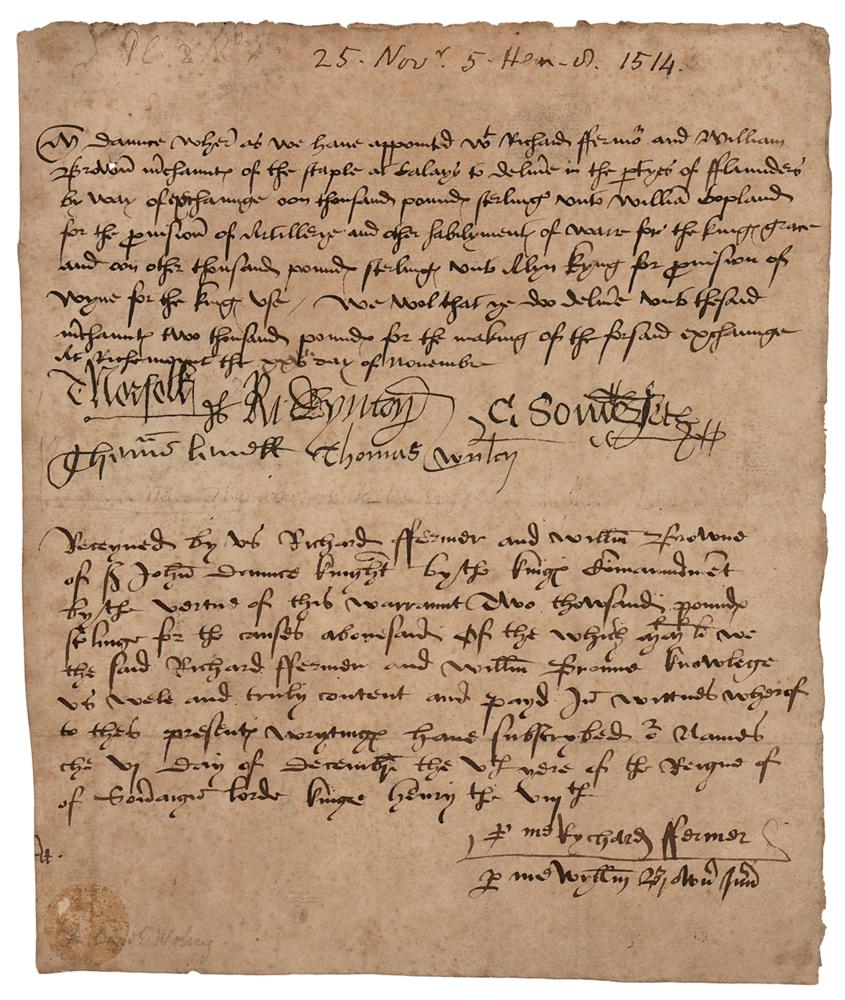 25. Novr. 5. Hen. 8. 1514.
M Daunce wher as we haue appointed wt Richard ffermor and William
Brown m'chaunts of the staple at Calays to deliu'e in the p'tyes of fflaunders
by way of exchaunge oon thousand pounds sterling vnto William Copland
for the p'uision of Artillerye and other habilyments of warre for the kings grace
and oon other thousand pounds sterling vnto Alyn Kyng for p'uision of
Wyne for the kings vse / We wol that ye do deliu'e vnto thesaid
m'chaunts two thousand pounds for the making of the forsaid exchaunge
At Richemount the day of Nouembre
T Norfolk Ri Wynton
Thomas Louell Thomas
Receyued by vs Richard ffermer and Willm Browne
of Sr John Daunce knyght by the kings Comaundment
by the vertue of this warraunt Two thowsand pounds
st'linge for the causes abouesaid Of the which we
the said Richard ffermer and Willm Browne knowlege
vs wele and truly content and payd In wittnes wherof
to thes presents wrytings haue subscrybed Names
the vj day of Decembr the vth yere of the Reigne of
of lorde kinge henry the viijth
P me Rychard ffermer
P me Wyllm Brown
Card. Wolsey